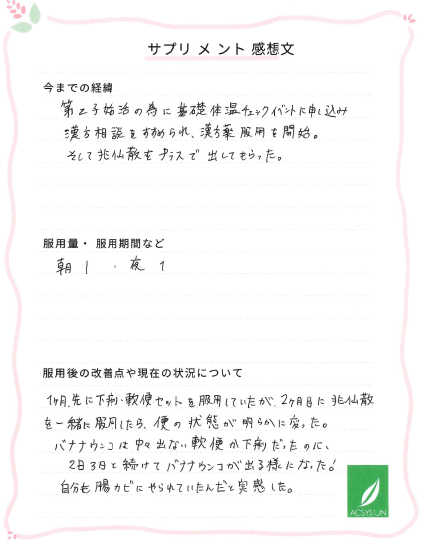 サプリメント感想文
今までの経緯
第2子妊活の為に基礎体温チェックイベントに申し込み
漢方相談をすすめられ、漢方薬服用を開始。
そして兆仙散をプラスで出してもらった。
服用量・服用期間など
朝1・夜1
服用後の改善点や現在の状況について
1ヶ月先に下痢・軟便セットを服用していたが、2ヶ月目に兆仙散
を一緒に服用したら、便の状態が明らかに変った。
バナナウンコは中々出ない軟便か下痢だったのに、
2日3日と続けてバナナウンコが出る様になった!
自分も腸カビにやられていたんだと実感した。
ACSYS LIN